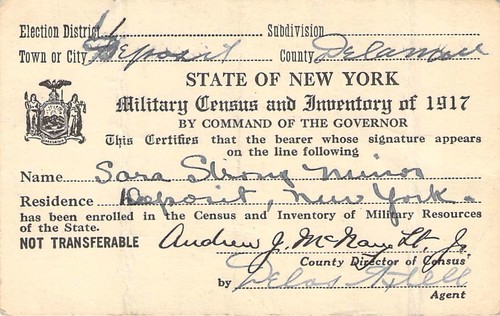 Election District 1 Subdivision
Town or City Deposit County Delaware
STATE OF NEW YORK
Military Census and Inventory of 1917
BY COMMAND OF THE GOVERNOR
This Certifies that the bearer whose signature appears
on the line following
Name Sara Strong Minor
Residence Deposit, New York.
has been enrolled in the Census and Inventory of Military Resources
of the State.
NOT TRANSFERABLE Andrew J. McNaught, Jr.
County Director of Census
by Delos
Agent